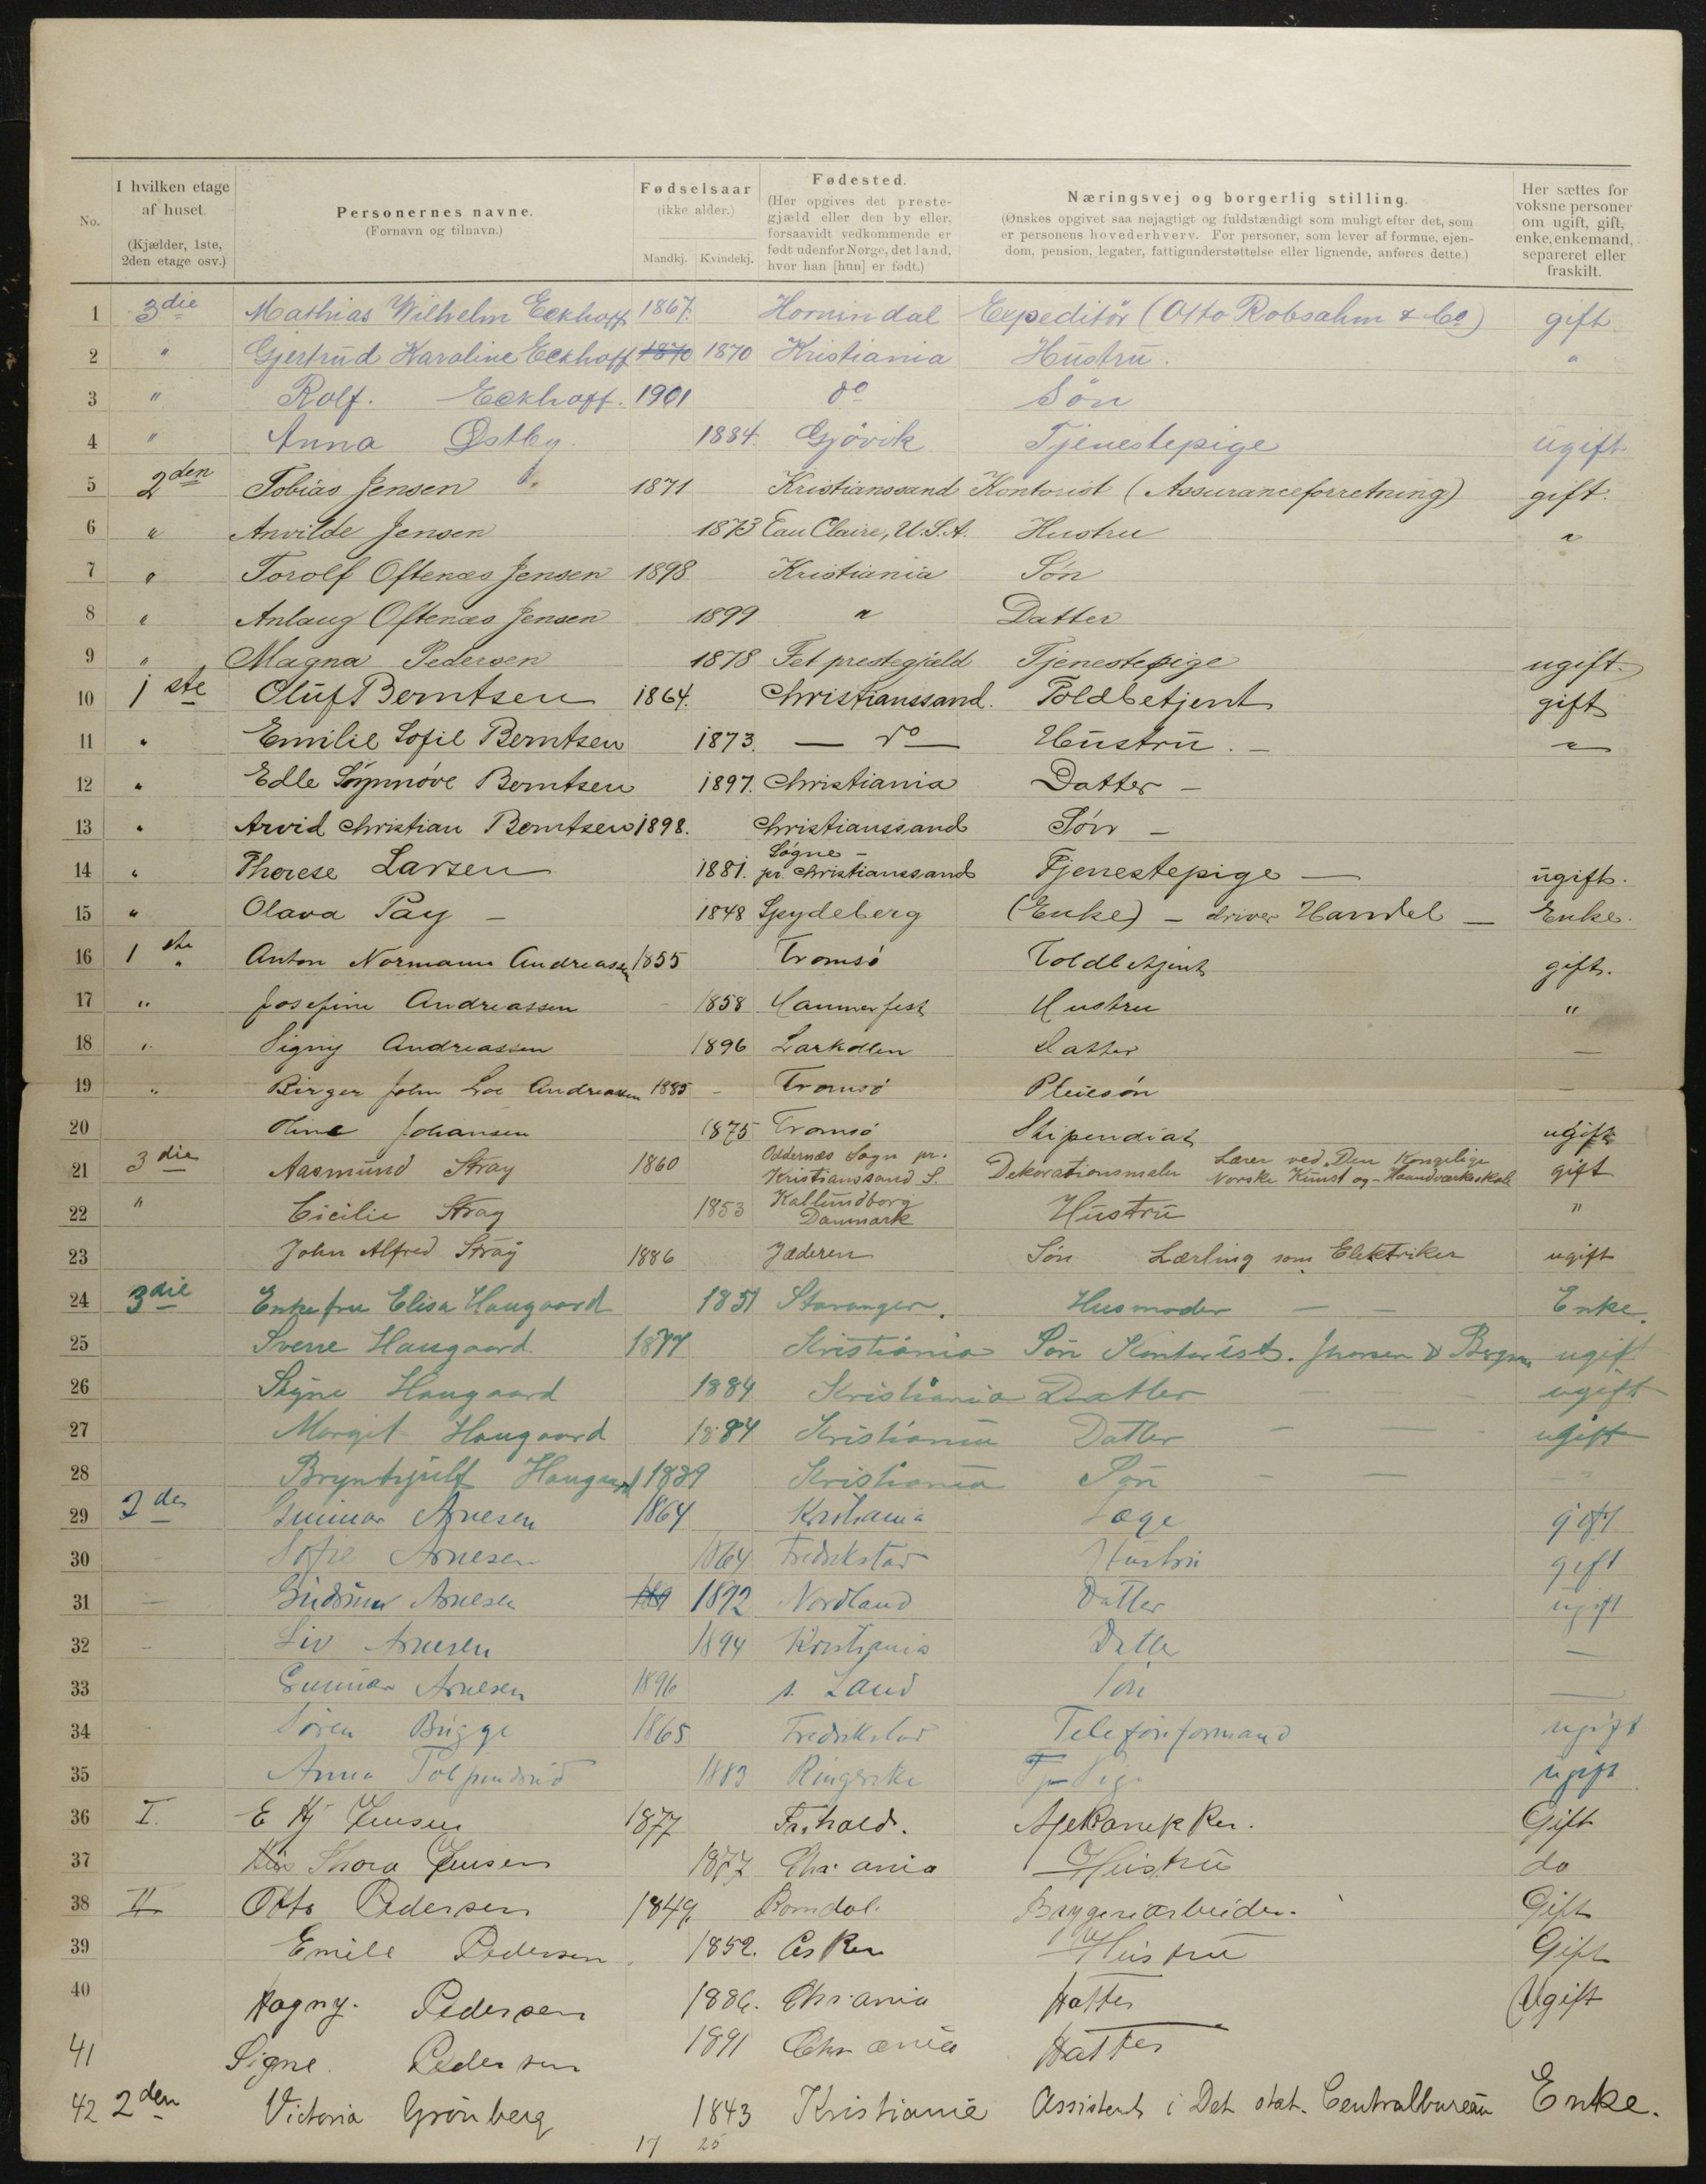 No.
I hvilken etage af huset. (Kjælder, 1ste, 2den etage osv.)
Personernes navne. (Fornavn og tilnavn.)
Fødselsaar (ikke alder.) Mandkj. Kvindekj.
Fødested. (Her opgives det prestegjæld eller den by eller, forsaavidt vedkommende er født udenfor Norge, det land, hvor han [hun] er født.)
Næringsvej og borgerlig stilling. (Ønskes opgivet saa nøjagtigt og fuldstændigt som muligt efter det, som er personens hovederhverv. For personer, som lever af formue, ejendom, pension, legater, fattigunderstøttelse eller lignende, anføres dette.)
Her sættes for voksne personer om ugift, gift, enke, enkemand, separeret eller fraskilt.
1 3die Mathias Wilhelm Eckhoff 1867. Hornindal Expeditör (Otto Robsahm & Co) gift
2 " Gjertrud Karoline Eckhoff 1870 1870 Kristiania Hustru. "
3 " Rolf. Eckhoff. 1901 do Sön
4 " Anna Østby. 1884. Gjövik Tjenestepige ugift
5 2den Tobias Jensen 1871 Kristianssand Kontorist (Assuranceforretning) gift.
6 " Anvilde Jensen 1873 Eau Claire, U.S.A. Hustru "
7 " Torolf Oftenæs Jensen 1898 Kristiania Sön
8 " Anlaug Oftenæs Jensen 1899 " Datter
9 " Magna Pedersen 1878 Fet prestegjæld Tjenestepige ugift.
10 1ste Oluf Berntsen 1864. Christianssand. Toldbetjent gift
11 " Emilie Sofie Berntsen 1873. — do — Hustru. — "
12 " Edle Synnöve Berntsen 1897. Christiania Datter —
13 " Arvid Christian Berntsen 1898. Christianssand Sön —
14 " Therese Larsen 1881. Søgne - pr. Christianssand Tjenestepige — ugift.
15 " Olava Pay — 1848 Spydeberg (Enke) — driver Handel — Enke.
16 1ste " Anton Normann Andreassen 1855 Tromsö Toldbetjent gift.
17 " Josefine Andreassen 1858 Hammerfest Hustru "
18 " Signy Andreassen 1896 Larkollen Datter —
19 " Birger John Andreassen 1885 - Tromsö Pleiesön —
20 Johansen 1875 Tromsö Stipendiat ugift
21 3die Aasmund Stray 1860 Oddernæs Sogn pr. Kristianssand S. Dekorationsmaler Lærer ved "Den Kongelige Norske Kunst og - Haandværksskole gift
22 " Cicilie Stray 1853 Kallundborg Danmark Hustru "
23 John Alfred Stray 1886 Jæderen Sön Lærling som Elektriker ugift
24 3die Enkefru Elisa Haugaard 1851 Stavanger. Husmoder — — Enke.
25 Sverre Haugaard 1877 Kristiania Sön Kontorist. ugift
26 Signe Haugaard 1884 Kristiania Datter — ugift
27 Margit Haugaard 1884 Kristiania Datter — — ugift
28 Brynhjulf Haugaard 1889 Kristiania Sön — —
29 2den Gunnar Arnesen 1864 Kristiania Læge gift
30 Sofie Arnesen 1864 Fredrikstad Hustru gift
31 — Gudrun Arnesen 1892 Nordland Datter ugift
32 - Liv Arnesen 1894 Kristiania Datter —
33 Gunnar Arnesen 1896 s. Land Sön —
34 Sören Bugge 1865 Fredrikstad Telefonformand ugift
35 Anna 1883 Ringerike ugift
36 I. E Hj Jensen 1877 Fr.hald. Mekanikker. Gift
37 Thora Jensen 1877 Chr.ania Hustru do
38 II Otto Pedersen 1849. Romdal. Bryggeriarbeider. Gift
39 Emile Pedersen 1852. Asker Hustru Gift
40 Dagny. Pedersen 1886. Chr.ania Datter Ugift
41 Signe. Pedersen 1891 Chr.ania Datter
42 2den Victoria Grönberg 1843 Kristiania Assistent i Det stat. Centralbureau Enke.
17 25